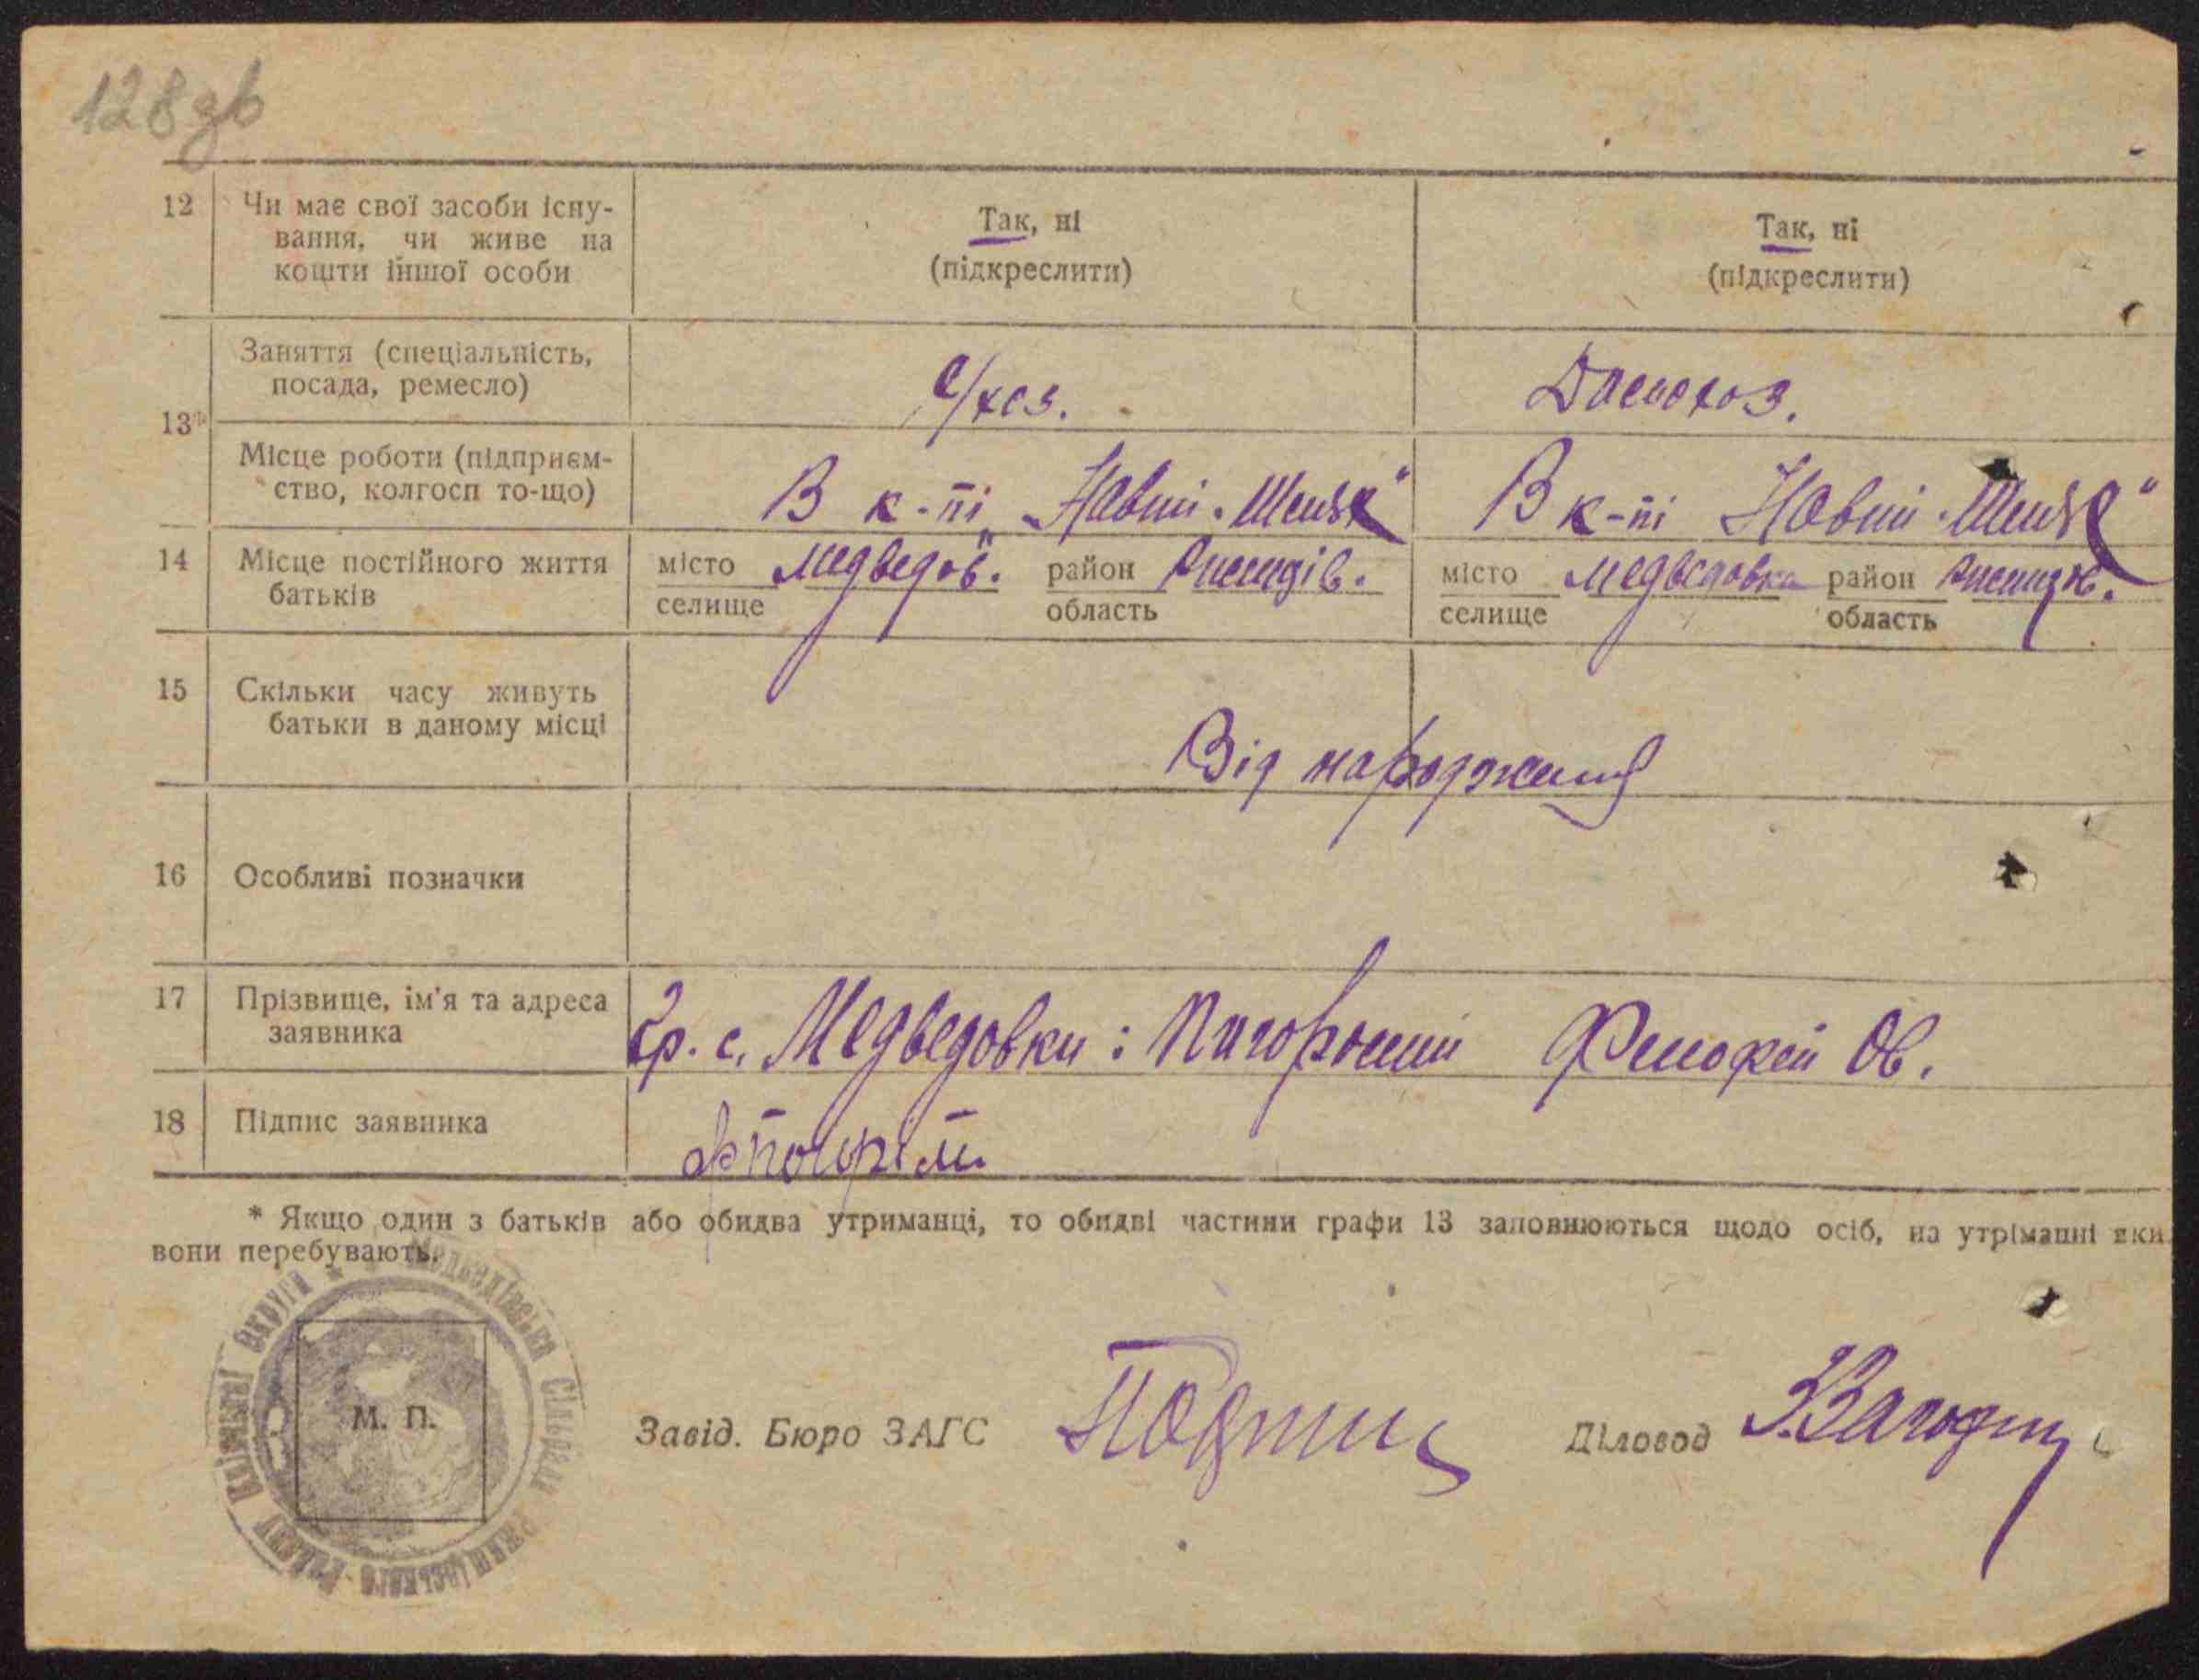 128зв
12 Чи має свої засоби існу-
вання, чи живе на
кошти іншої особи
Так, ні
(підкреслити)
Так, ні
(підкреслити)
13*
Заняття (спеціальність,
посада, ремесло)
с/хоз.
Домохоз.
Місце роботи (підприєм-
ство, колгосп то-що)
В к-пі „Новий-Шлях"
В к-пі Новий-Шлях"
14 Місце постійного життя
батьків
місто Медведов. район
селище область
місто Медведовка район
селище область
15 Скільки часу живуть
батьки в даному місці
Від народження
16 Особливі позначки
17 Прізвище, ім'я та адреса
заявника
Гр. с. Медведовки: Ов.
18 Підпис заявника
* Якщо один з батьків або обидва утриманці, то обидві частини графи 13 заповнюються щодо осіб, на утріманні яки
вони перебувають.
Медведівська Сільрада
Округи
М. П.
Завід. Бюро ЗАГС
Діловод